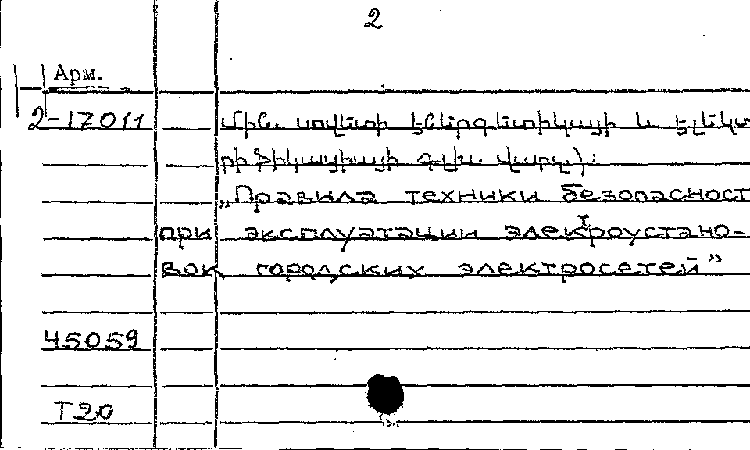 2
Арм.
2-17011
Մին. սովետի էներգետիկայի և էլեկտ
րիֆիկացիայի գլխ. վարչ.):
„Правила техники безопасност
при эксплуатации электроустано-
вок городских электросетей”
45059
T20